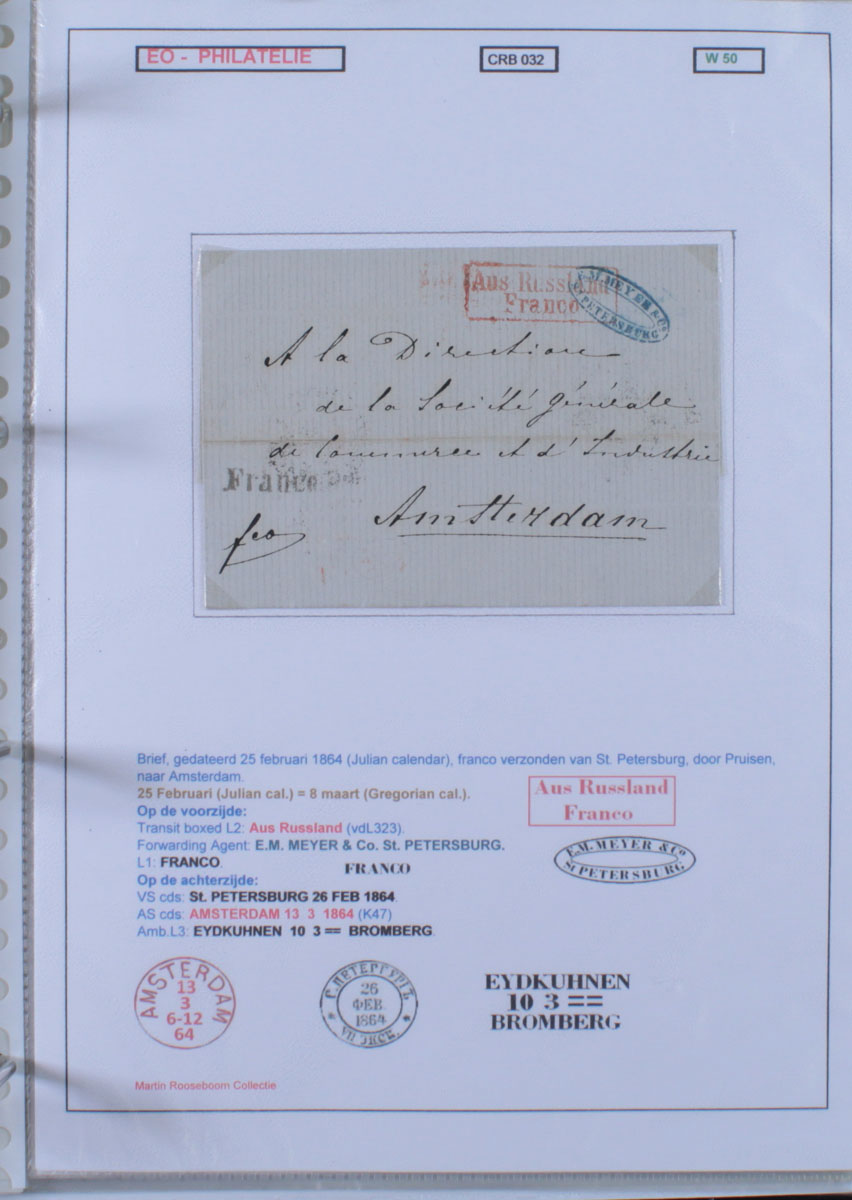 EO - PHILATELIE
CRB 032
W 50
Aus Russland
Franco
E.M. MEYER & Co
St PETERSBURG
A la Direction
de la Société Générale
de Commerce et d'Industrie
Franco
Amsterdam
fco
Brief, gedateerd 25 februari 1864 (Julian calendar), franco verzonden van St. Petersburg, door Pruisen,
naar Amsterdam.
25 Februari (Julian cal.) = 8 maart (Gregorian cal.).
Op de voorzijde:
Transit boxed L2: Aus Russland (vdL323).
Forwarding Agent: E.M. MEYER & Co. St. PETERSBURG.
L1: FRANCO.
Op de achterzijde:
VS cds: St. PETERSBURG 26 FEB 1864.
AS cds: AMSTERDAM 13 3 1864 (K47)
Amb.L3: EYDKUHNEN 10 3 == BROMBERG.
Aus Russland
Franco
E.M. MEYER & Co
St PETERSBURG
FRANCO
AMSTERDAM
13
3
6-12
64
С.ПЕТЕРГУРГЪ
26
ФЕВ.
1864
VII ЭКСП.
EYDKUHNEN
10 3 ==
BROMBERG
Martin Rooseboom Collectie